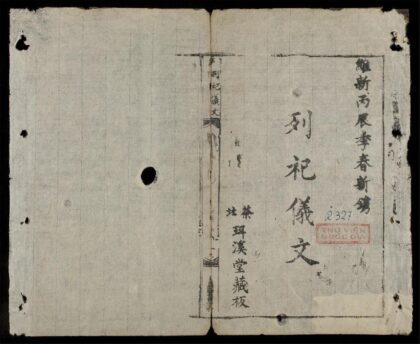 維新丙辰季春新鐫
列祀儀文
珥溪堂藏板
2327
THƯ VIỆN
QUỐC GIA
列祀儀文